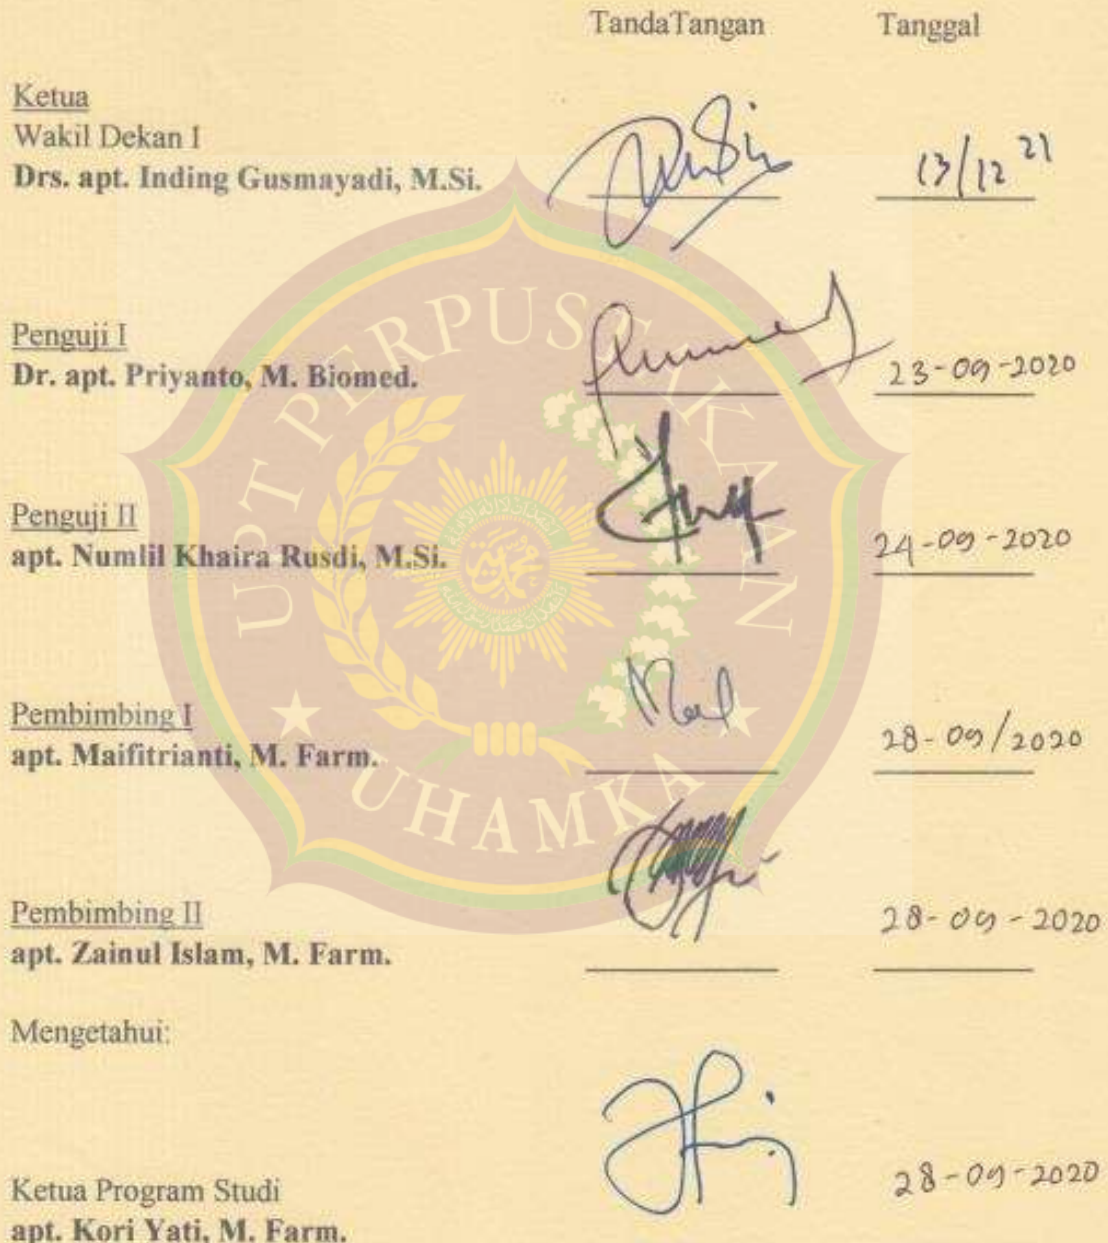 TandaTangan Tanggal
Ketua
Wakil Dekan I
Drs. apt. Inding Gusmayadi, M.Si. 13/12 21
Penguji I
Dr. apt. Priyanto, M. Biomed. 23-09-2020
Penguji II
apt. Numlil Khaira Rusdi, M.Si. 24-09-2020
Pembimbing I
apt. Maifitrianti, M. Farm. 28-09/2020
Pembimbing II
apt. Zainul Islam, M. Farm. 28-09-2020
Mengetahui:
Ketua Program Studi 28-09-2020
apt. Kori Yati, M. Farm.
UPT PERPUSTAKAAN
UHAMKA